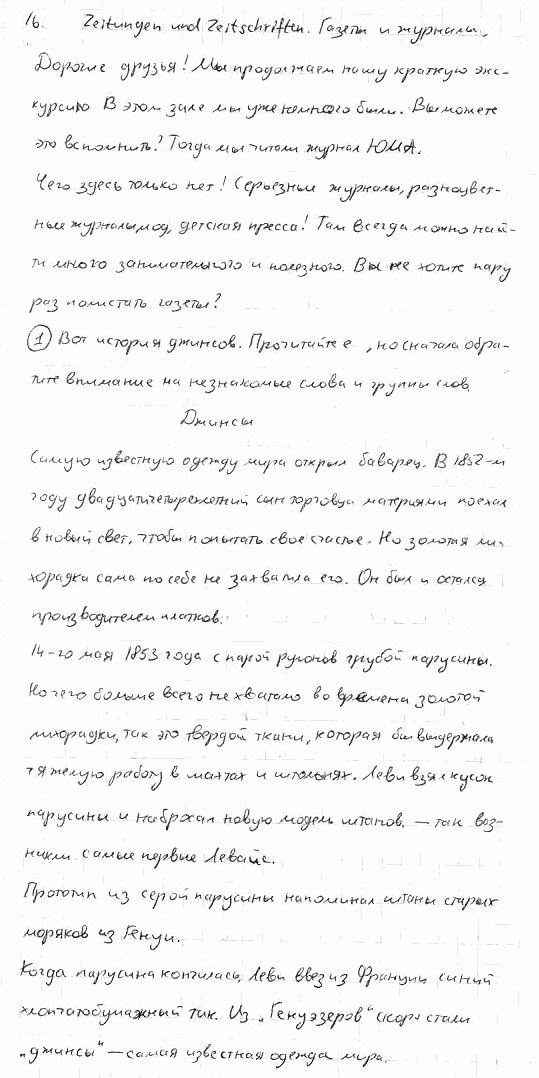 16. Zeitungen und Zeitschriften. Газеты и журналы.
Дорогие друзья! Мы продолжаем нашу краткую экс-
курсию В этом зале мы уже немного были. Вы можете
это вспомнить? Тогда мы читали журнал ЮМА.
Чего здесь только нет! Серьезные журналы, разноцвет-
ные журналы мод, детская пресса! Там всегда можно най-
ти много занимательного и полезного. Вы не хотите пару
раз полистать газеты?
1 Вот история джинсов. Прочитайте е , но сначала обра-
тите внимание на незнакомые слова и группы слов.
Джинсы
Самую известную одежду мира открыл баварец. В 1852-м
году двадцатичетырехлетний сын торговца материями поехал
в новый свет, чтобы попытать свое счастье. Но золотая ли-
хорадка сама по себе не захватила его. Он был и остался
производителем платков.
14-го мая 1853 года с парой рулонов грубой парусины.
Но чего больше всего не хватало во времена золотой
лихорадки, так это твердой ткани, которая бы выдержала
тяжелую работу в шахтах и штольнях. Леви взял кусок
парусины и набросал новую модель штанов. — так воз-
никли самые первые Левайс.
Прототип из серой парусины напоминал штаны старых
моряков из Генуи.
Когда парусина кончилась, Леви ввез из Франции синий
хлопчатобумажный тик. Из „Генуэзеров" скоро стали
„джинсы" — самая известная одежда мира.